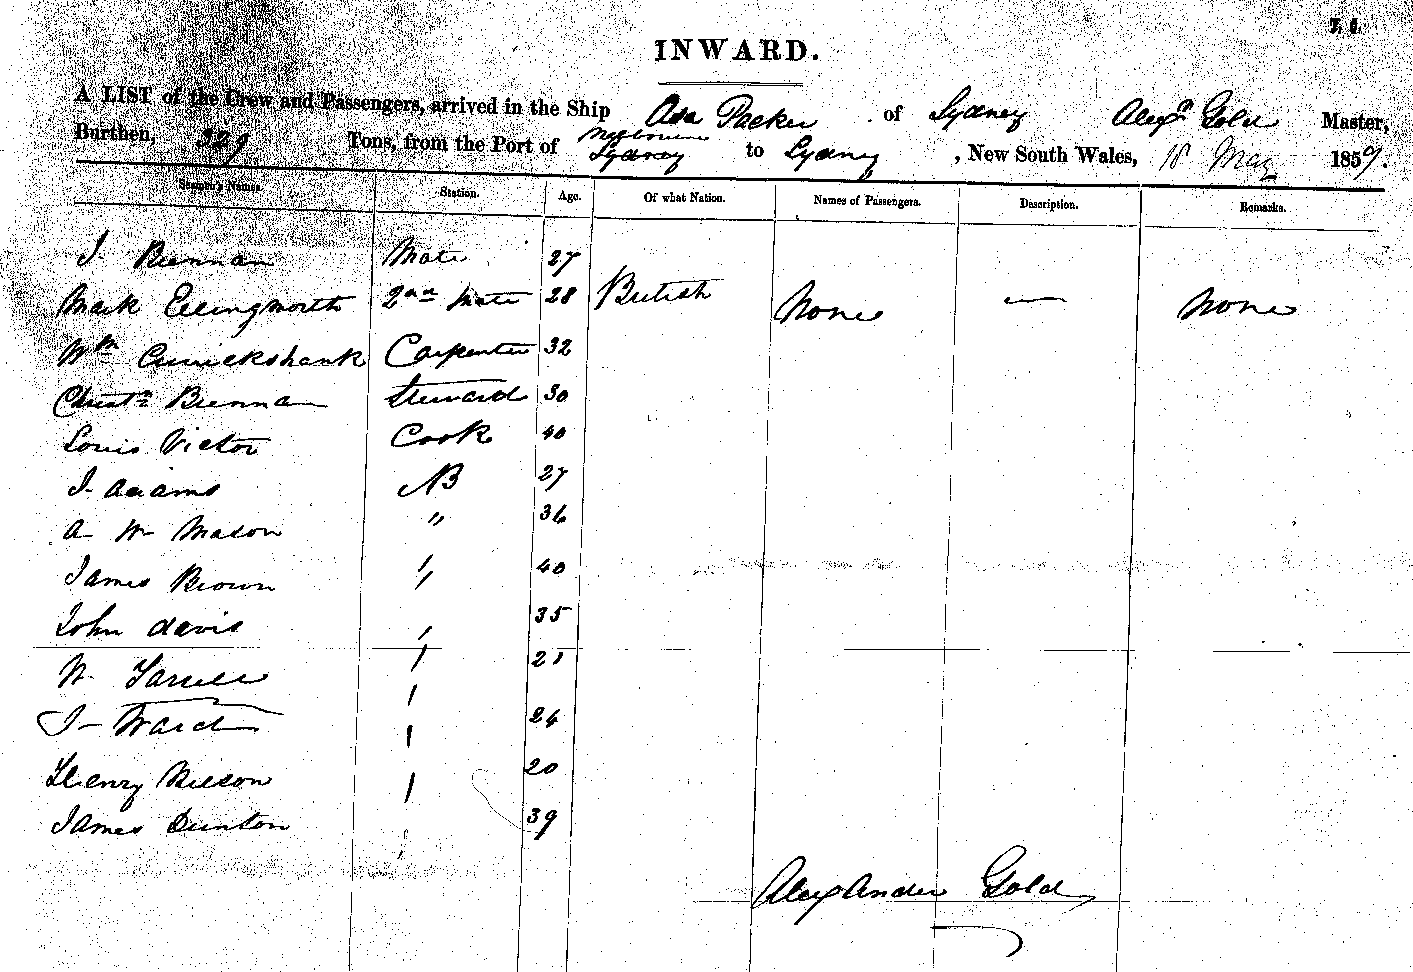 INWARD.
A LIST of the Crew and Passengers, arrived in the Ship Asa Packer of Sydney Alexr Gold Master,
Burthen, 329 Tons, from the Port of Melbourne Sydney to Sydney, New South Wales, 18 May 1859.
Seamen's Names. Station. Age. Of what Nation. Names of Passengers. Description. Remarks.
J. Brennan Mate 27
Mark Ellingworth 2nd Mate 28 British None — None
Wm Cruickshank Carpenter 32
Christn Brennan Steward 30
Louis Victor Cook 40
J. Adams AB 27
A Wm Mason " 36
James Brown " 40
John Davis " 35
W. 21
J- Ward 24
Henry 20
James Dunton 39
Alexander Gold